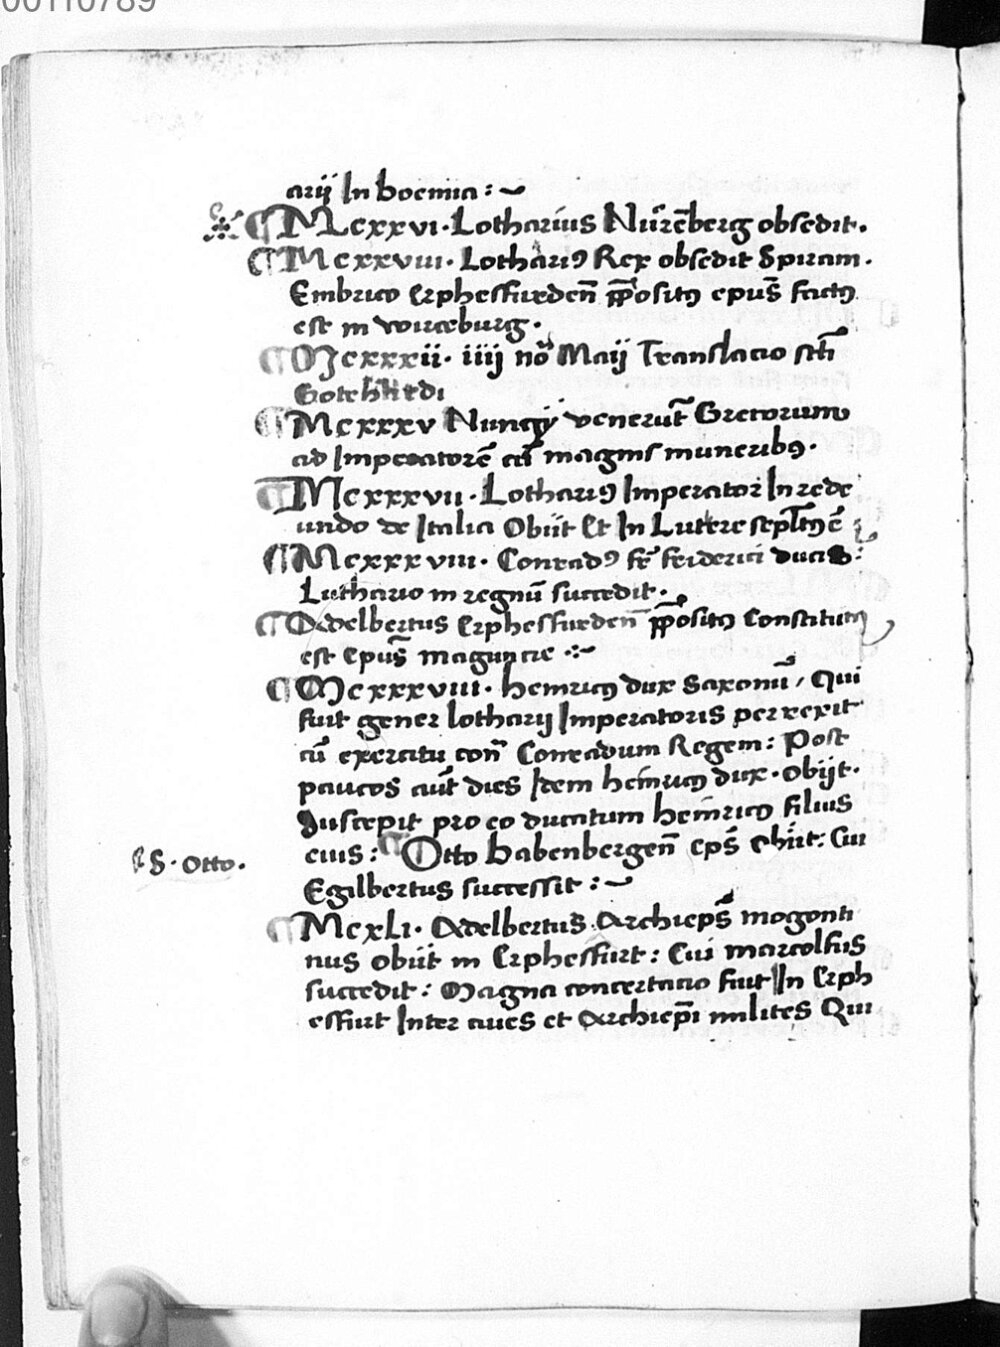 00110789
arij In boemia :~
¶ Mcxxvi · Lotharius Nũrẽberg obsedit .
¶ Mcxxviii · Lothariꝯ Rex obsedit Spiram .
Embrico Erphesfurdeñ p̄positꝯ epus̄ factꝯ
est in wirceburg .
¶ Mcxxxii · iiij no᷉ Maij Translacio sc̄ti
Gotehardi
¶ Mcxxxv Nuncij venerut̄ Grecorum
ad Imperatorē cū magnis muneribꝯ .
¶ Mcxxxvii · Lothariꝯ Imperator In rede
undo de Italia Obiit Et In Lutere
¶ Mcxxxviii · Conradꝯ fr̄ friderici ducis :
Luthario in regnū succedit .
¶ Adelbertus Erphesfurdeñ p̄positꝯ Constitutꝯ
est Epus̄ maguncie .:~
¶ Mcxxxviii · heinricꝯ dux Saxonū , Qui
fuit gener lotharij Imperatoris perrexit
cū exercitu con̄ Conradum Regem : Post
paucos aut̄ dies Idem heinricꝯ dux · Obijt .
Suscepit pro eo ducatum heinricꝯ filius
eius : ¶ Otto babenbergeñ eps̄ obiit : Cui
S · Otto .
Egilbertus successit :~
¶ Mcxli · Adelbertus Archieps̄ mogonti
nus obiit in Erphesfurt : Cui marcolfus
succedit : Magna concertacio fuit In Erph
esfurt Inter ciues et Archiepī milites Qui